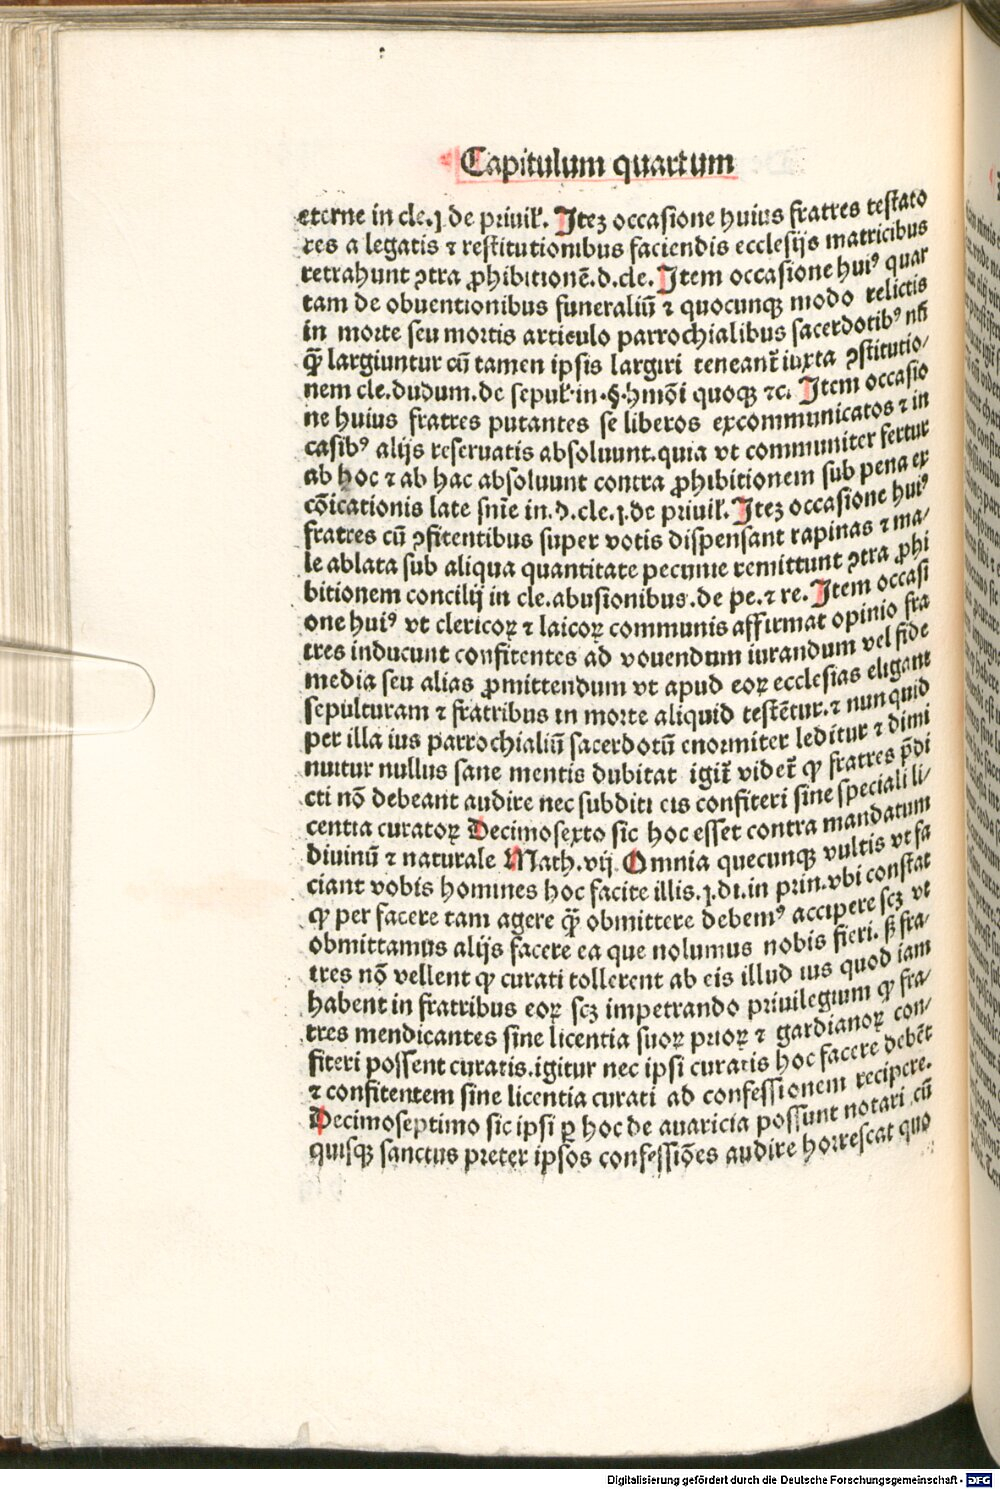 Capitulum quartum
eterne in cle.j.de priuil̉. Itez occasione huius fratres testato
res a legatis ⁊ restitutionibus faciendis ecclesijs matricibus
retrahunt ꝯtra ꝓhibitionē.d.cle. Item occasione huiꝰ quar
tam de obuentionibus funeraliū ⁊ quocunqꝫ modo relictis
in morte seu mortis articulo parrochialibus sacerdotibꝰ nō
ꝙ̄ largiuntur cū tamen ipsis largiri teneant̄ iuxta ꝯstitutio/
nem cle.dudum.de sepul̉.in.§.hmōi quoqꝫ ⁊c. Item occasio
ne huius fratres putantes se liberos excommunicatos ⁊ in
casibꝰ alijs reseruatis absoluunt.quia vt communiter fertur
ab hoc ⁊ ab hac absoluunt contra ꝓhibitionem sub pena ex
cōicationis late snīe in.d.cle.j.de priuil̉. Itez occasione huiꝰ
fratres cū ꝯfitentibus super votis dispensant rapinas ⁊ ma/
le ablata sub aliqua quantitate pecunie remittunt ꝯtra ꝓhi
bitionem concilij in cle.abusionibus.de pe.⁊ re. Item occasi
one huiꝰ vt clericoꝝ ⁊ laicoꝝ communis affirmat opinio fra
tres inducunt confitentes ad vouendum iurandum vel fide
media seu alias ꝓmittendum vt apud eoꝝ ecclesias eligant
sepulturam ⁊ fratribus in morte aliquid testētur.⁊ nunquid
per illa ius parrochialiū sacerdotū enormiter leditur ⁊ dimi
nuitur nullus sane mentis dubitat igit̄ videt̄ ꝙ fratres p̄di
cti nō debeant audire nec subditi eis confiteri sine speciali li/
centia curatoꝝ Decimosexto sic hoc esset contra mandatum
diuinū ⁊ naturale Math.vij. Omnia quecunqꝫ vultis vt fa
ciant vobis homines hoc facite illis.j.di.in prin.vbi constat
ꝙ per facere tam agere ꝙ̄ obmittere debemꝰ accipere scꝫ vt
obmittamus alijs facere ea que nolumus nobis fieri. sꝫ fra/
tres nō vellent ꝙ curati tollerent ab eis illud ius quod iam
habent in fratribus eoꝝ scꝫ impetrando priuilegium ꝙ fra/
tres mendicantes sine licentia suoꝝ prioꝝ ⁊ gardianoꝝ con/
fiteri possent curatis.igitur nec ipsi curatis hoc facere debēt
⁊ confitentem sine licentia curati ad confessionem recipere.
Decimoseptimo sic ipsi ꝑ hoc de auaricia possunt notari cū
quisqꝫ sanctus preter ipsos confessiōes audire horrescat quo
Digitalisierung gefördert durch die Deutsche Forschungsgemeinschaft - DFG